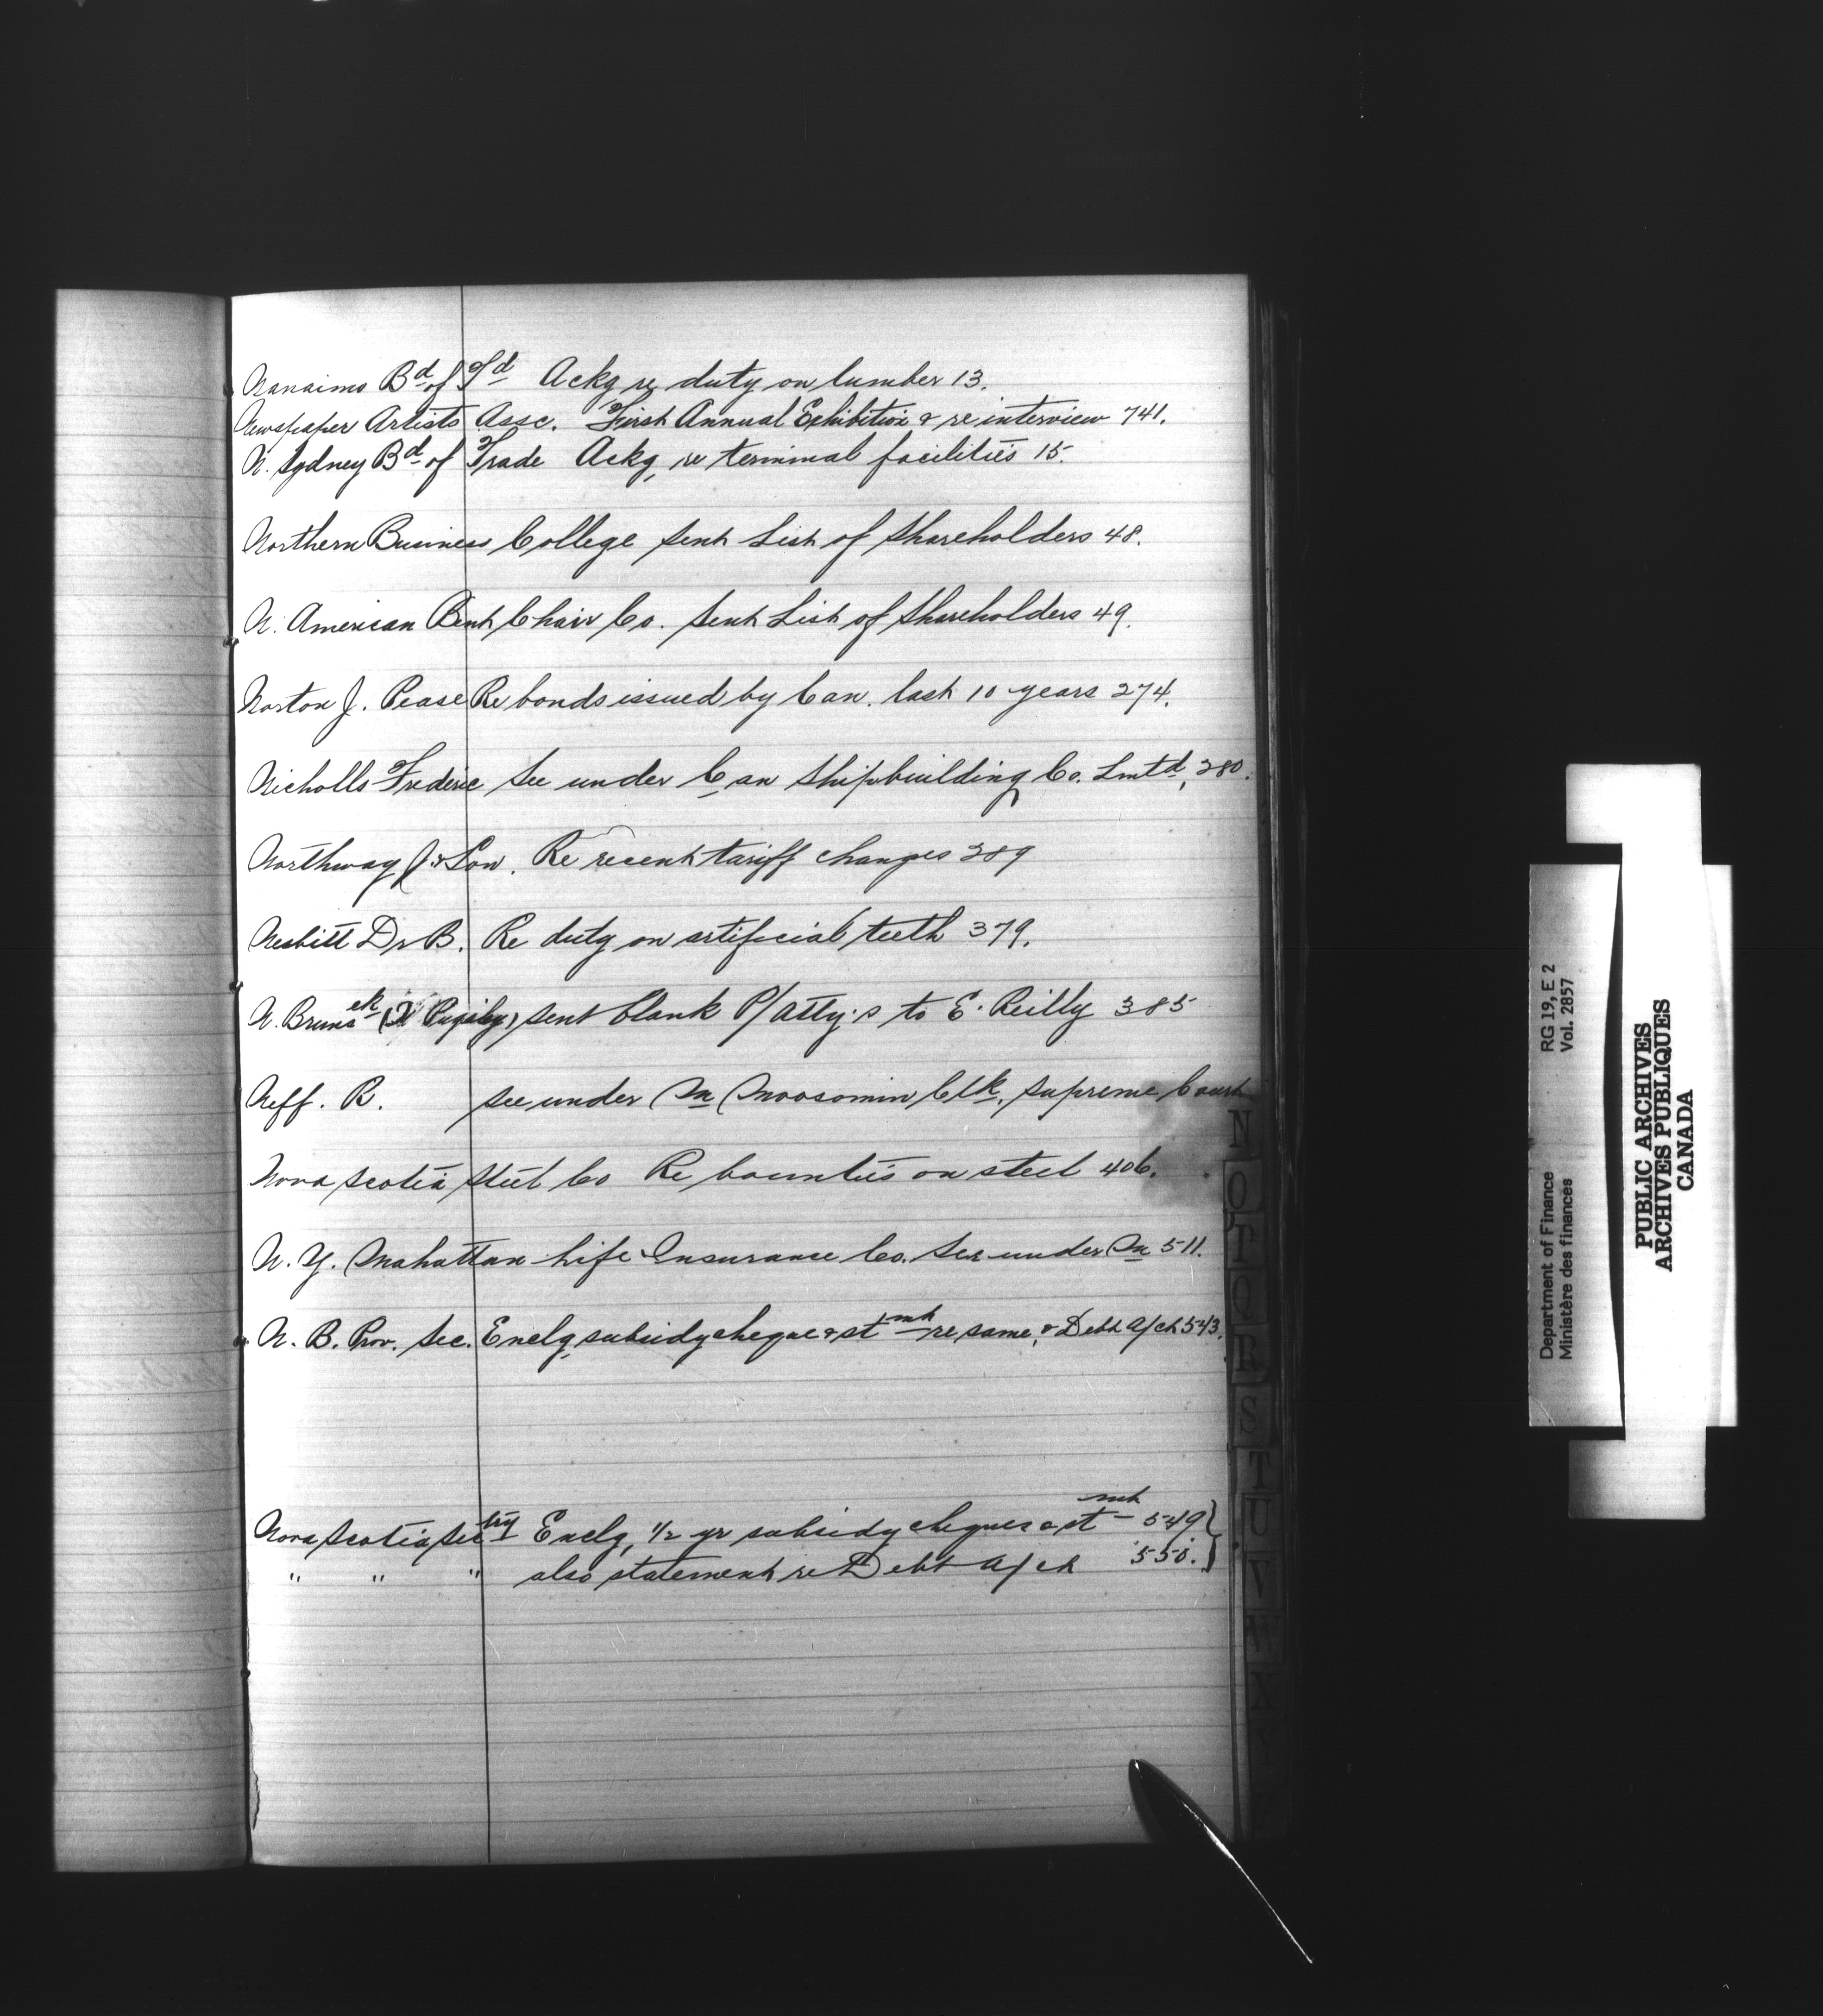 Nanaimo Bd of Td Ackg re duty on lumber 13.
Newspaper Artists Assc. First Annual Exhibition & re interview 741.
N. Sydney Bd of Trade Ackg re terminal facilities 15.
Northern Business College sent List of Shareholders 48.
N. American Bent Chair Co. Sent List of Shareholders 49.
Norton J. Pease Re bonds issued by Can. last 10 years 274.
Nicholls Frederic See under Can Shipbuilding Co. Lmtd, 280.
Northway J. & Son. Re recent tariff changes 289
Nesbitt Dr B. Re duty on artificial teeth 379.
N. Brunsck ( Pugsley) sent blank P/Atty's to E. Reilly 385
Neff. R. see under M Moosomin Clk, Supreme Court
Nova Scotia Steel Co Re bounties on steel 406.
N. Y. Mahattan Life Insurance Co. See under M 511.
N. B. Prov. Sec. Enclg subsidy cheque & stmnt re same, & Debt a/ct 543.
Nova Scotia Sectry Enclg, 1/2 yr subsidy cheques & stmnt 549
" " " also statement re Debt a/ct 550.
N
O
P
Q
R
S
T
U
V
W
X
RG 19, E 2
Vol. 2857
Department of Finance
Ministère des finances
PUBLIC ARCHIVES
ARCHIVES PUBLIQUES
CANADA